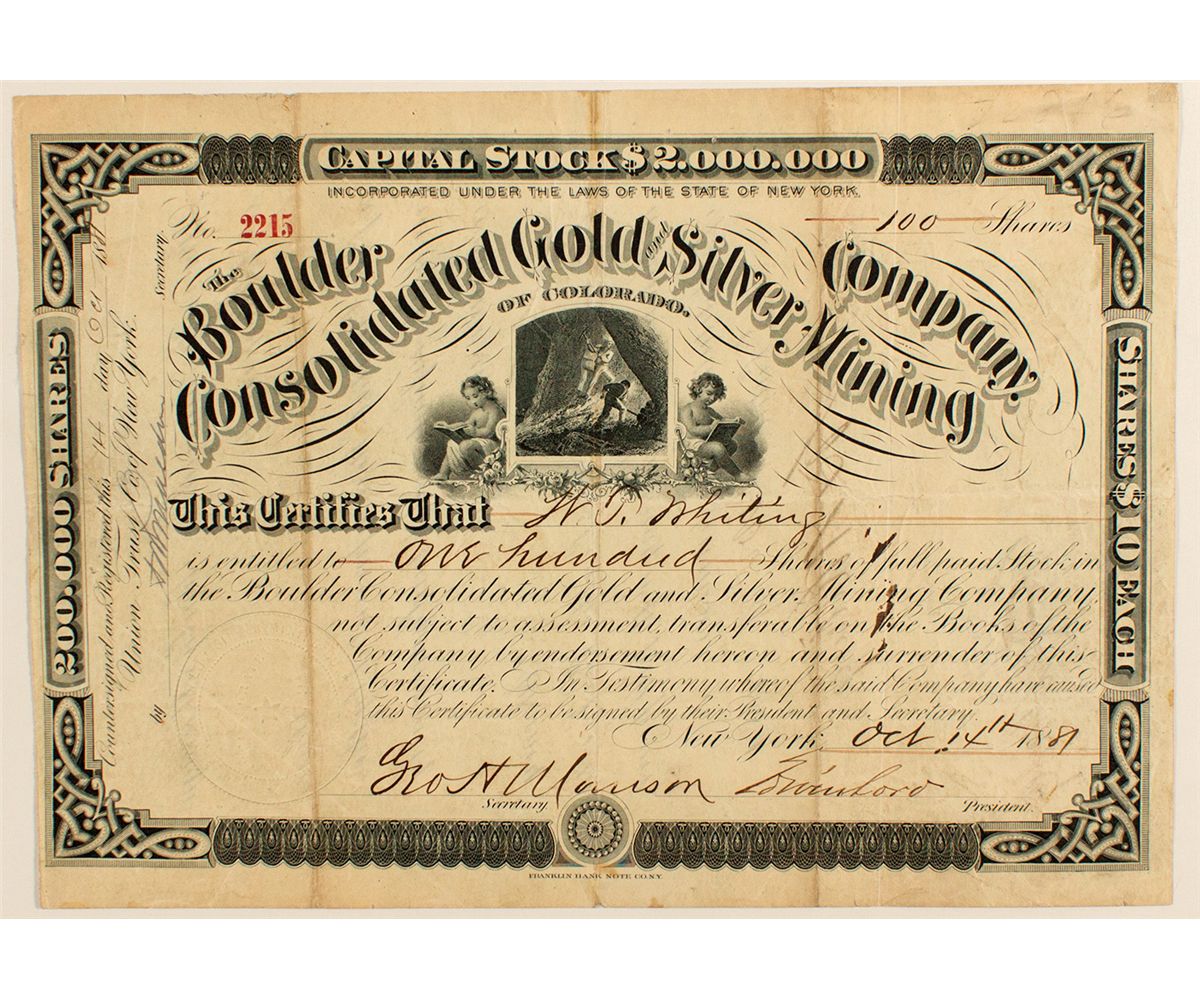 CAPITAL STOCK $2.000.000
INCORPORATED UNDER THE LAWS OF THE STATE OF NEW YORK.
No. 2215
100 Shares
The Boulder
Consolidated Gold and Silver Mining
Company.
OF COLORADO.
This Certifies That W. T. Whiting
is entitled to one hundred Shares of full paid Stock in
the Boulder Consolidated Gold and Silver Mining Company,
not subject to assessment, transferable on the Books of the
Company by endorsement hereon and surrender of this
Certificate. In Testimony whereof the said Company have caused
this Certificate to be signed by their President and Secretary.
New York, Oct. 14th 1881
Geo H Manson
Secretary
President.
FRANKLIN BANK NOTE CO. N.Y.
200.000 SHARES
Countersigned and Registered this 14 day Oct 1881
Union Trust Co. of New York.
by
Secretary.
SHARES $10 EACH